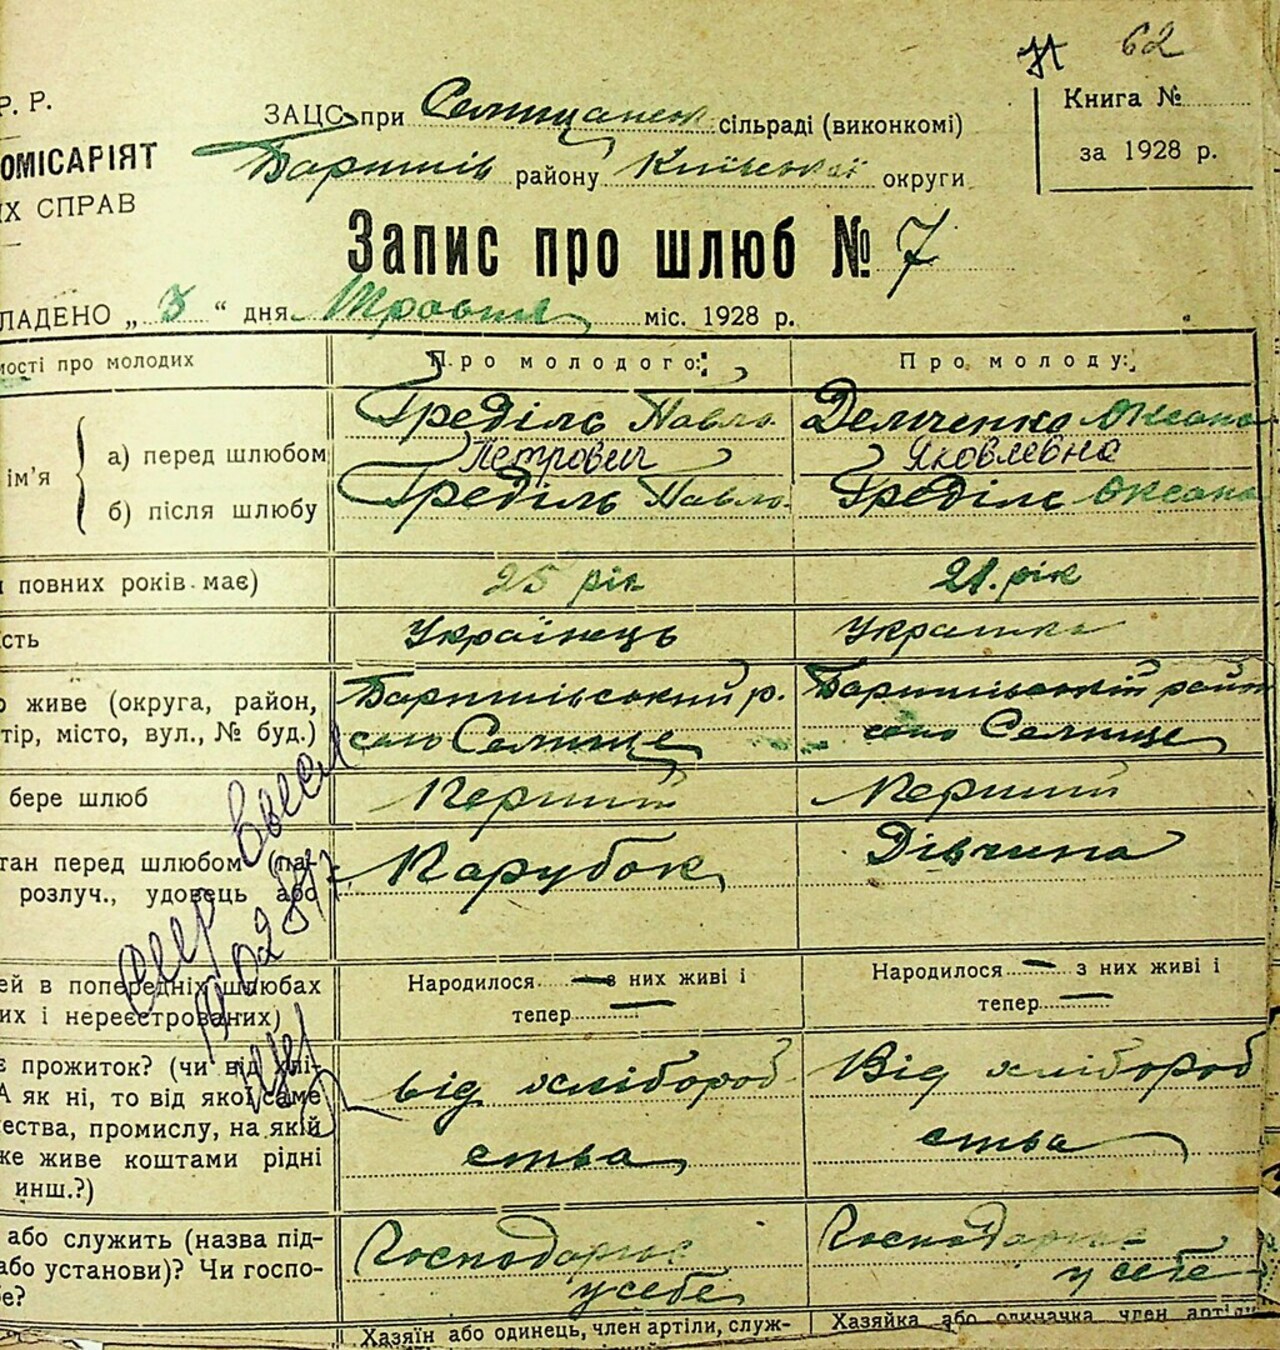 62
Р. Р.
ЗАЦС при Селищанск сільраді (виконкомі)
Книга №
ОМІСАРІЯТ
Баришів району Київської округи
за 1928 р.
ИХ СПРАВ
Запис про шлюб № 7
ЛАДЕНО „ 3 “ дня Травня міс. 1928 р.
мості про молодих
Про молодого:
Про молоду:
Греділь Павло
Демченко Оксана
а) перед шлюбом
Петрович
Яковлевна
ім’я
б) після шлюбу
Греділь Павло
Греділь Оксана
повних років має)
25 рік
21. рік
ість
Українець
Українка
о живе (округа, район,
Баришівський р.
Баришівський район
тір, місто, вул., № буд.)
село Селище
село Селище
бере шлюб
Перший
Перший
тан перед шлюбом (па-
розлуч., удовець або
Парубок
Дівчина
ей в попередніх шлюбах
их і нереєстрованих)
Народилося — з них живі і
тепер —
Народилося — з них живі і
тепер —
є прожиток? (чи від хлі-
А як ні, то від якої саме
ества, промислу, на якій
же живе коштами рідні
инш.?)
від хлібороб
ства
Від хлібороб
ства
або служить (назва під-
або установи)? Чи госпо-
е?
Господарює
у себе
Господарює
у себе
Хазяїн або одинець, член артіли, служ-
Хазяйка або одиначка член артіл